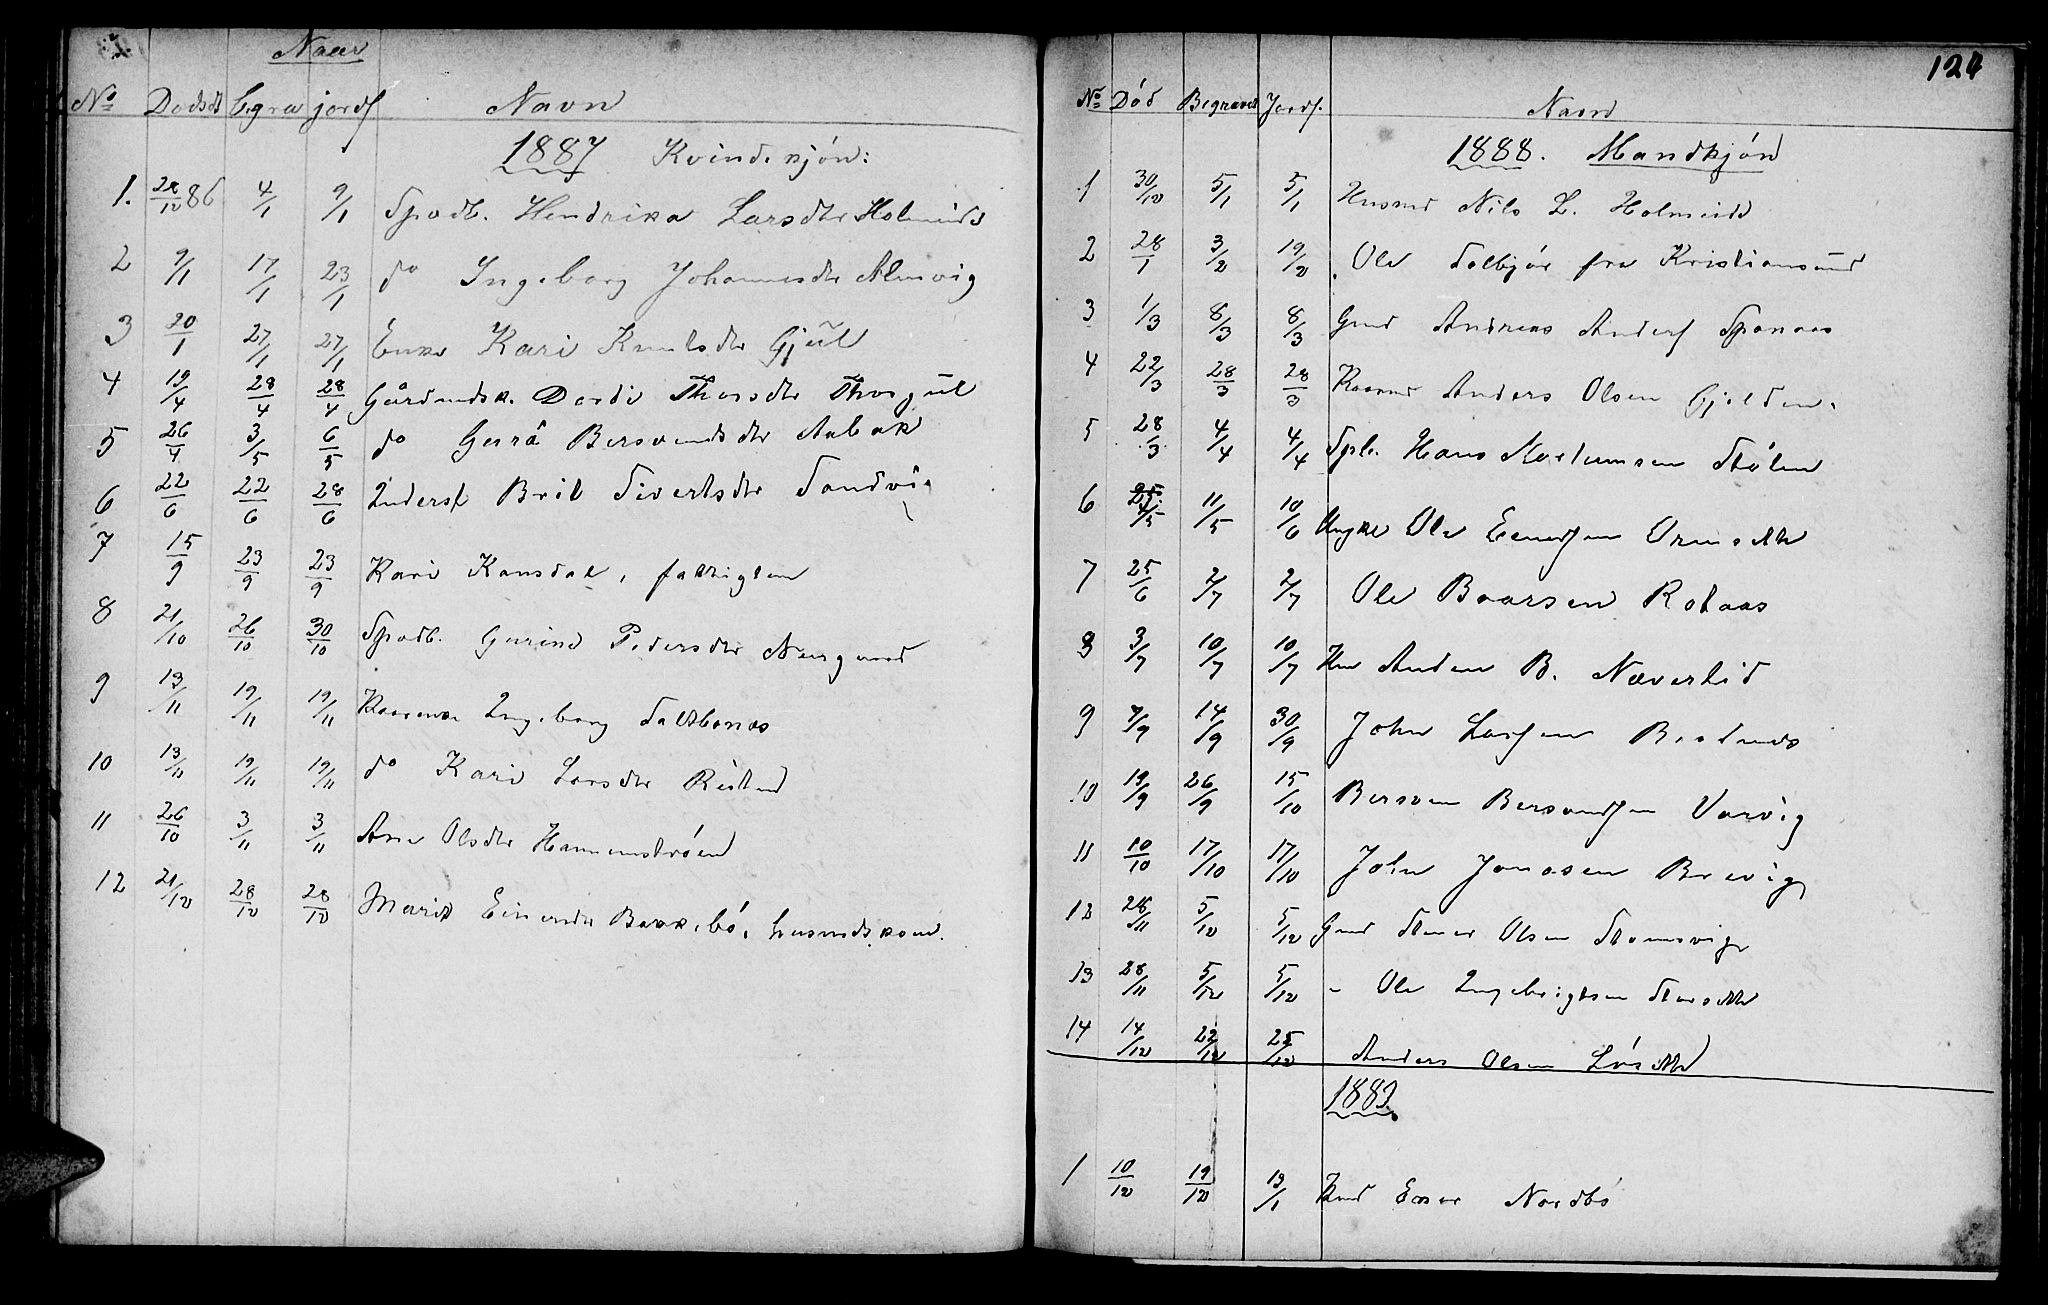 Naar
No Dødsdt begra jordf Navn
1887 Kvindekjøn:
1. 28/12 86 4/1 9/1 Spædb. Hendrika Larsdtr Holmeide
2 9/1 17/1 23/1 do Ingeborg Johannesdtr Almvig
3 20/1 27/1 27/1 Enke Kari Knutsdtr Gjül
4 19/4 28/4 28/4 Gårdmdsk. Dordi Thorsdtr
5 26/4 3/5 6/5 do Gurå Bersvendsdtr Aabak
6 22/6 22/6 28/6 Inderst Brit Sivertsdtr Sandvi
7 15/9 23/9 23/9 Kari Kansdal, fattiglem
8 21/10 26/10 30/10 Spædb. Gurine Pedersdtr
9 13/11 19/11 19/11 Kaarenke Ingeborg Saltbones
10 13/11 19/11 19/11 do Kari Larsdtr
11 26/10 3/11 3/11 Ane Olsdtr Hammerstrøen
12 21/12 28/12 28/12 Marit husmdskone.
124
No Død Begravet Jordf. Navn
1888. Mandkjøn
1 30/12 5/1 5/1 Husmd Nils L. Holmeide
2 28/1 3/2 19/2 Ole Solbjør fra Kristiansund
3 1/3 8/3 8/3 Gmd Andreas Anders Spones
4 22/3 28/3 28/3 Kaarmd Anders Olsen Gjelden.
5 28/3 4/4 4/4 Spb. Hans Mortensen Stølen
6 11/5 10/6 Ungkl Ole
7 25/6 2/7 2/7 Ole Baarsen Rotaas
8 3/7 10/7 10/7 B. Næverlid
9 7/9 14/9 30/9 John Larsen
10 19/9 26/9 15/10 Bersven Bersvendsen Vorvig
11 10/10 17/10 17/10 John Jonasen Brevig
12 28/11 5/12 5/12 Gmd Stener Olsen Stomsvig
13 28/11 5/12 5/12 - Ole Ingebrigtsen
14 14/12 22/12 25/12 Anders Olsen
1889.
1 10/12 19/12 13/1 Nordbø